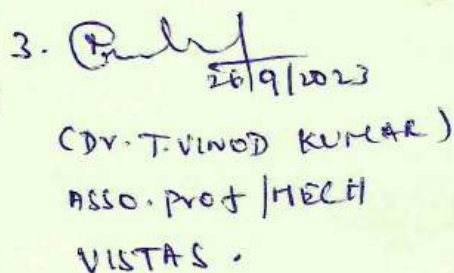 3.
26/9/2023
(Dr. T. VINOD KUMAR)
ASSO. Prof / MECH
VISTAS.